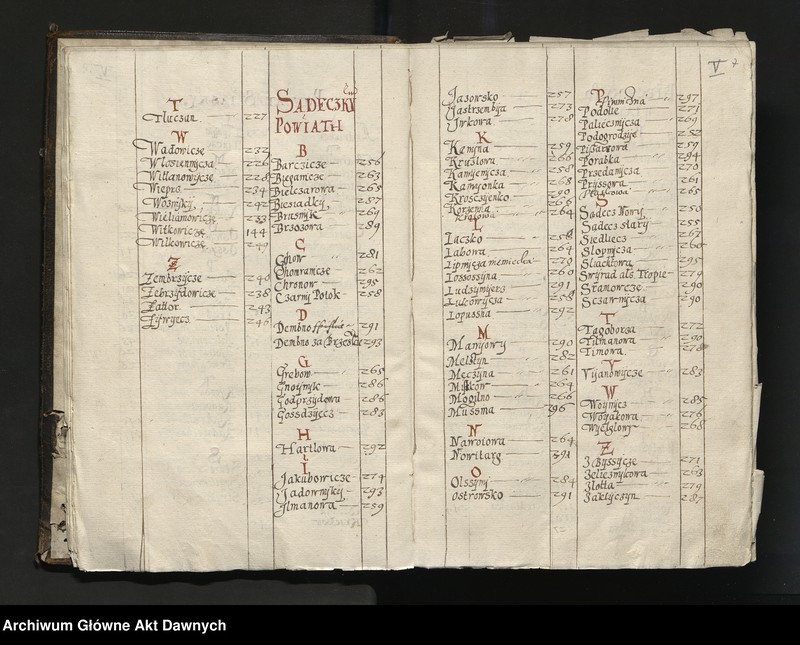 T
Tluczan 227
W
Wadowicze 232
Wlosiennycza 226
Witlanowycze 228
Wieprz 234
Wozniky 242
Wieliamowicze 233
Witkowicze 144
Wilkowicze
Z
Zembrzycze 240
Zebrzydowicze 238
Zathor 243
Zifwyecz
SADECZKY
POWIATH
B
Barczicze 256
Biegancze 263
Bielczarowa 265
Biesiadky 257
Brusnyk 269
Brzozowa 289
C
Czhow 281
Chomrancze 262
Chronow 295
Czarny Potok 258
D
Dembno 291
Dembno za Brzeskie 293
G
Grebow 265
Gnoynyk 286
Godprzydowa 286
Gossdzyecz 283
H
Hartlowa 292
I
Jakubowicze 274
Jadownyky 293
Ilmanowa 259
Jazowsko 257
Jastrzembija 273
Jurkowa 278
K
Kamyna 259
Kruzlowa 266
Kamyenycza 258
Kamyonka 268
Krosczyenko 290
Korzenna 266
Krasowa 264
L
Laczko 258
Labowa 264
Lipnycza niemiecka 270
Lossoszyna 260
Ludzymyerz 291
Lukowycza 258
Lopussna 292
M
Manyowy 290
Melsztyn 282
Meczyna 261
Mylkow 264
Mogilno 266
Mussina 296
N
Nawoiowa 264
Nowitarg 291
O
Olszyny 284
Ostrowsko 291
V
P
Piwniczna 297
Podolie 271
Paliecznycza 269
Podogrodzye 252
Pisarzowa 259
Porabka 294
Przedanycza 270
Pryssowa 261
Ptaskowa 265
S
Sadecz Nowy 250
Sadecz stary 255
Siedliecz 267
Slopnycza 260
Sluchlowa 295
Swyrad als Tropie 279
Stanowcze 290
Sczawnycza 290
T
Tagoborza 272
Tilmanowa 290
Timowa 278
V
Vyanowycze 283
W
Woynycz 285
Woyakowa 276
Wyelglowy 268
Z
Zbyssycze 271
Zeliesnykowa 263
Zlotta 279
Zakliczyn 287
Archiwum Główne Akt Dawnych